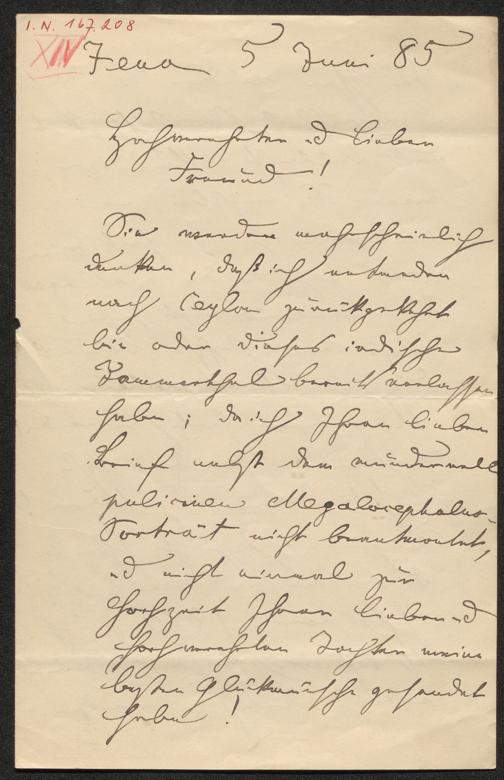 I.N. 167.208
XIV
Jena 5 Juni 85
Hochverehrter u lieber
Freund!
Sie werden wahrscheinlich
denken, daß ich entweder
nach Ceylon zurückgekehrt
bin oder dieses irdische
Jammerthal bereits verlassen
habe; da ich Ihren lieben
Brief nebst dem wundervoll
Megalocephalus-
Porträt nicht beantwortet,
u nicht einmal zur
Hochzeit Ihrer lieben u
hochverehrten Tochter meine
besten Glückwünsche gesendet
habe!